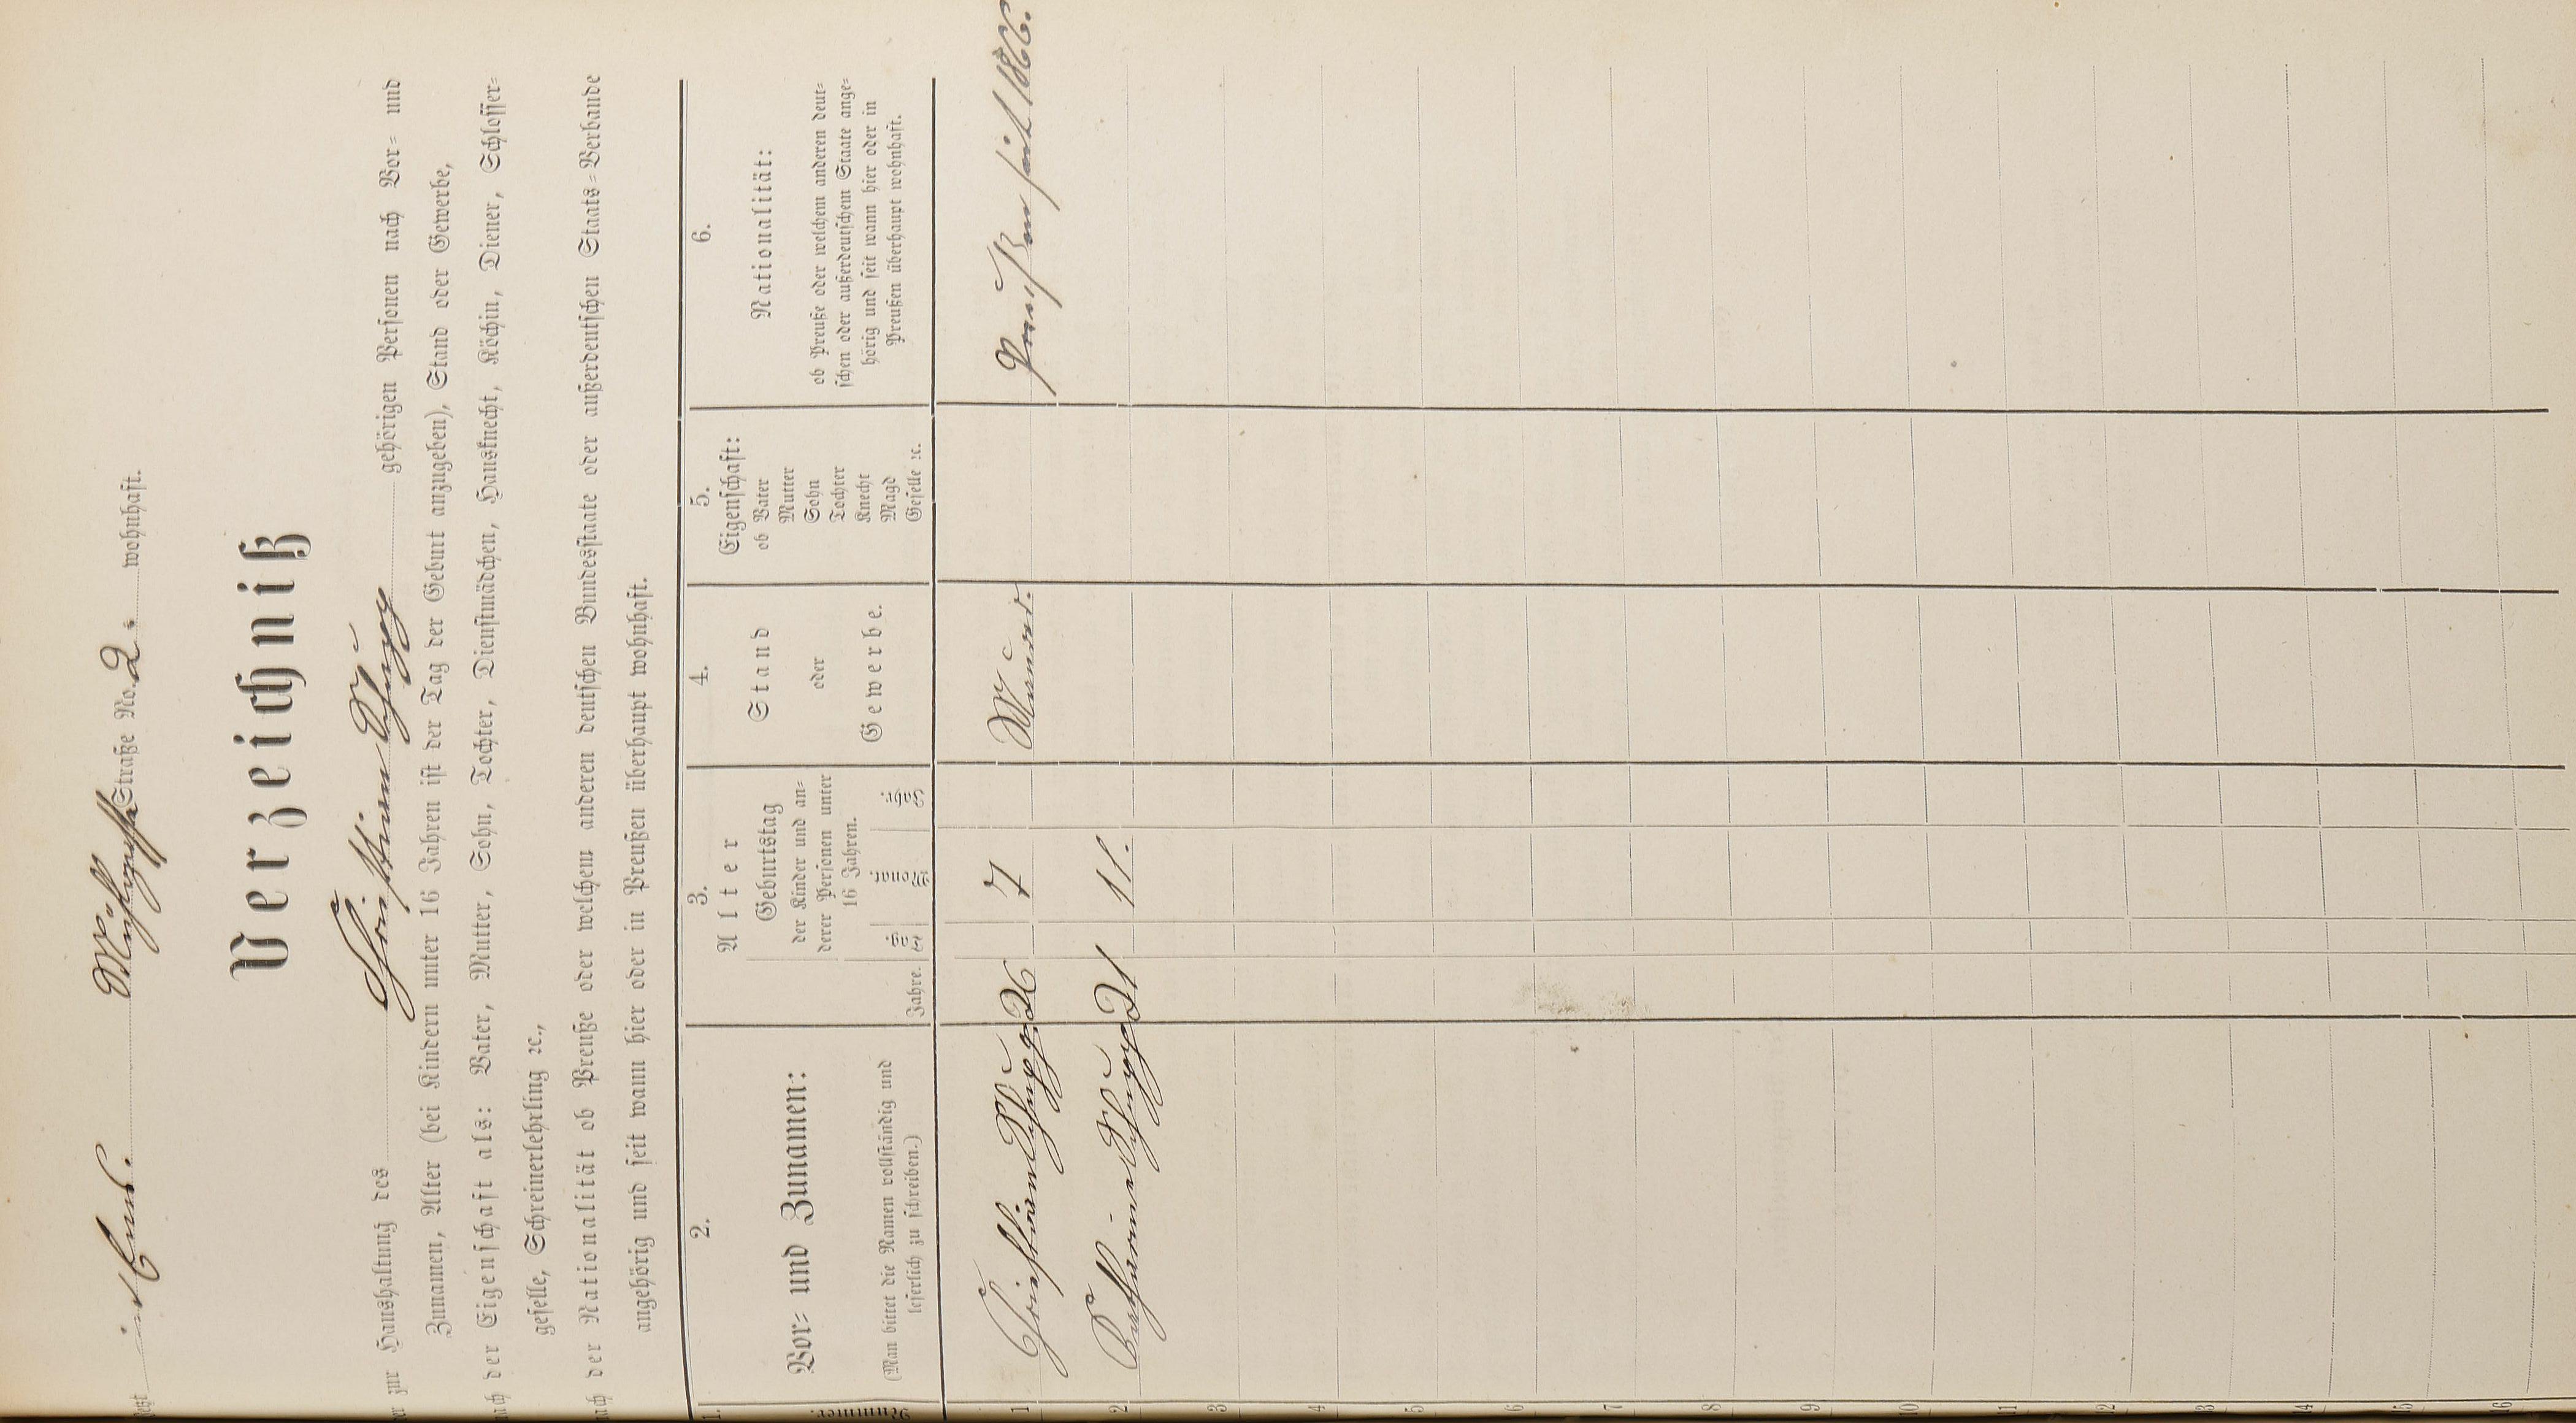 jetzt in Ems. Mühlgasse Straße No. 2. wohnhaft.
Verzeichniß
er zur Haushaltung des Christian Schupp gehörigen Personen nach Vor= und
Zunamen, Alter (bei Kindern unter 16 Jahren ist der Tag der Geburt anzugeben), Stand oder Gewerbe,
nach der Eigenschaft als: Vater, Mutter, Sohn, Tochter, Dienstmädchen, Hausknecht, Köchin, Diener, Schlosser=
geselle, Schreinerlehrling ꝛc.,
nach der Nationalität ob Preuße oder welchem anderen deutschen Bundesstaate oder außerdeutschen Staats=Verbande
angehörig und seit wann hier oder in Preußen überhaupt wohnhaft.
1.
nummer.
2.
Vor= und Zunamen:
(Man bittet die Namen vollständig und
leserlich zu schreiben.)
3.
Alter
Jahre.
Geburtstag
der Kinder und an=
derer Personen unter
16 Jahren.
Tag. Monat. Jahr.
4.
Stand
oder
Gewerbe.
5.
Eigenschaft:
ob Vater
Mutter
Sohn
Tochter
Knecht
Magd
Geselle ꝛc.
6.
Nationalität:
ob Preuße oder welchem anderen deut=
schen oder außerdeutschem Staate ange=
hörig und seit wann hier oder in
Preußen überhaupt wohnhaft.
1 Christian Schupp 26 7 Maurer. Preußen seit 1866.
2 Katharine Schupp 21 11.
3
4
5
6
7
8
9
10
11
12
13
14
15
16